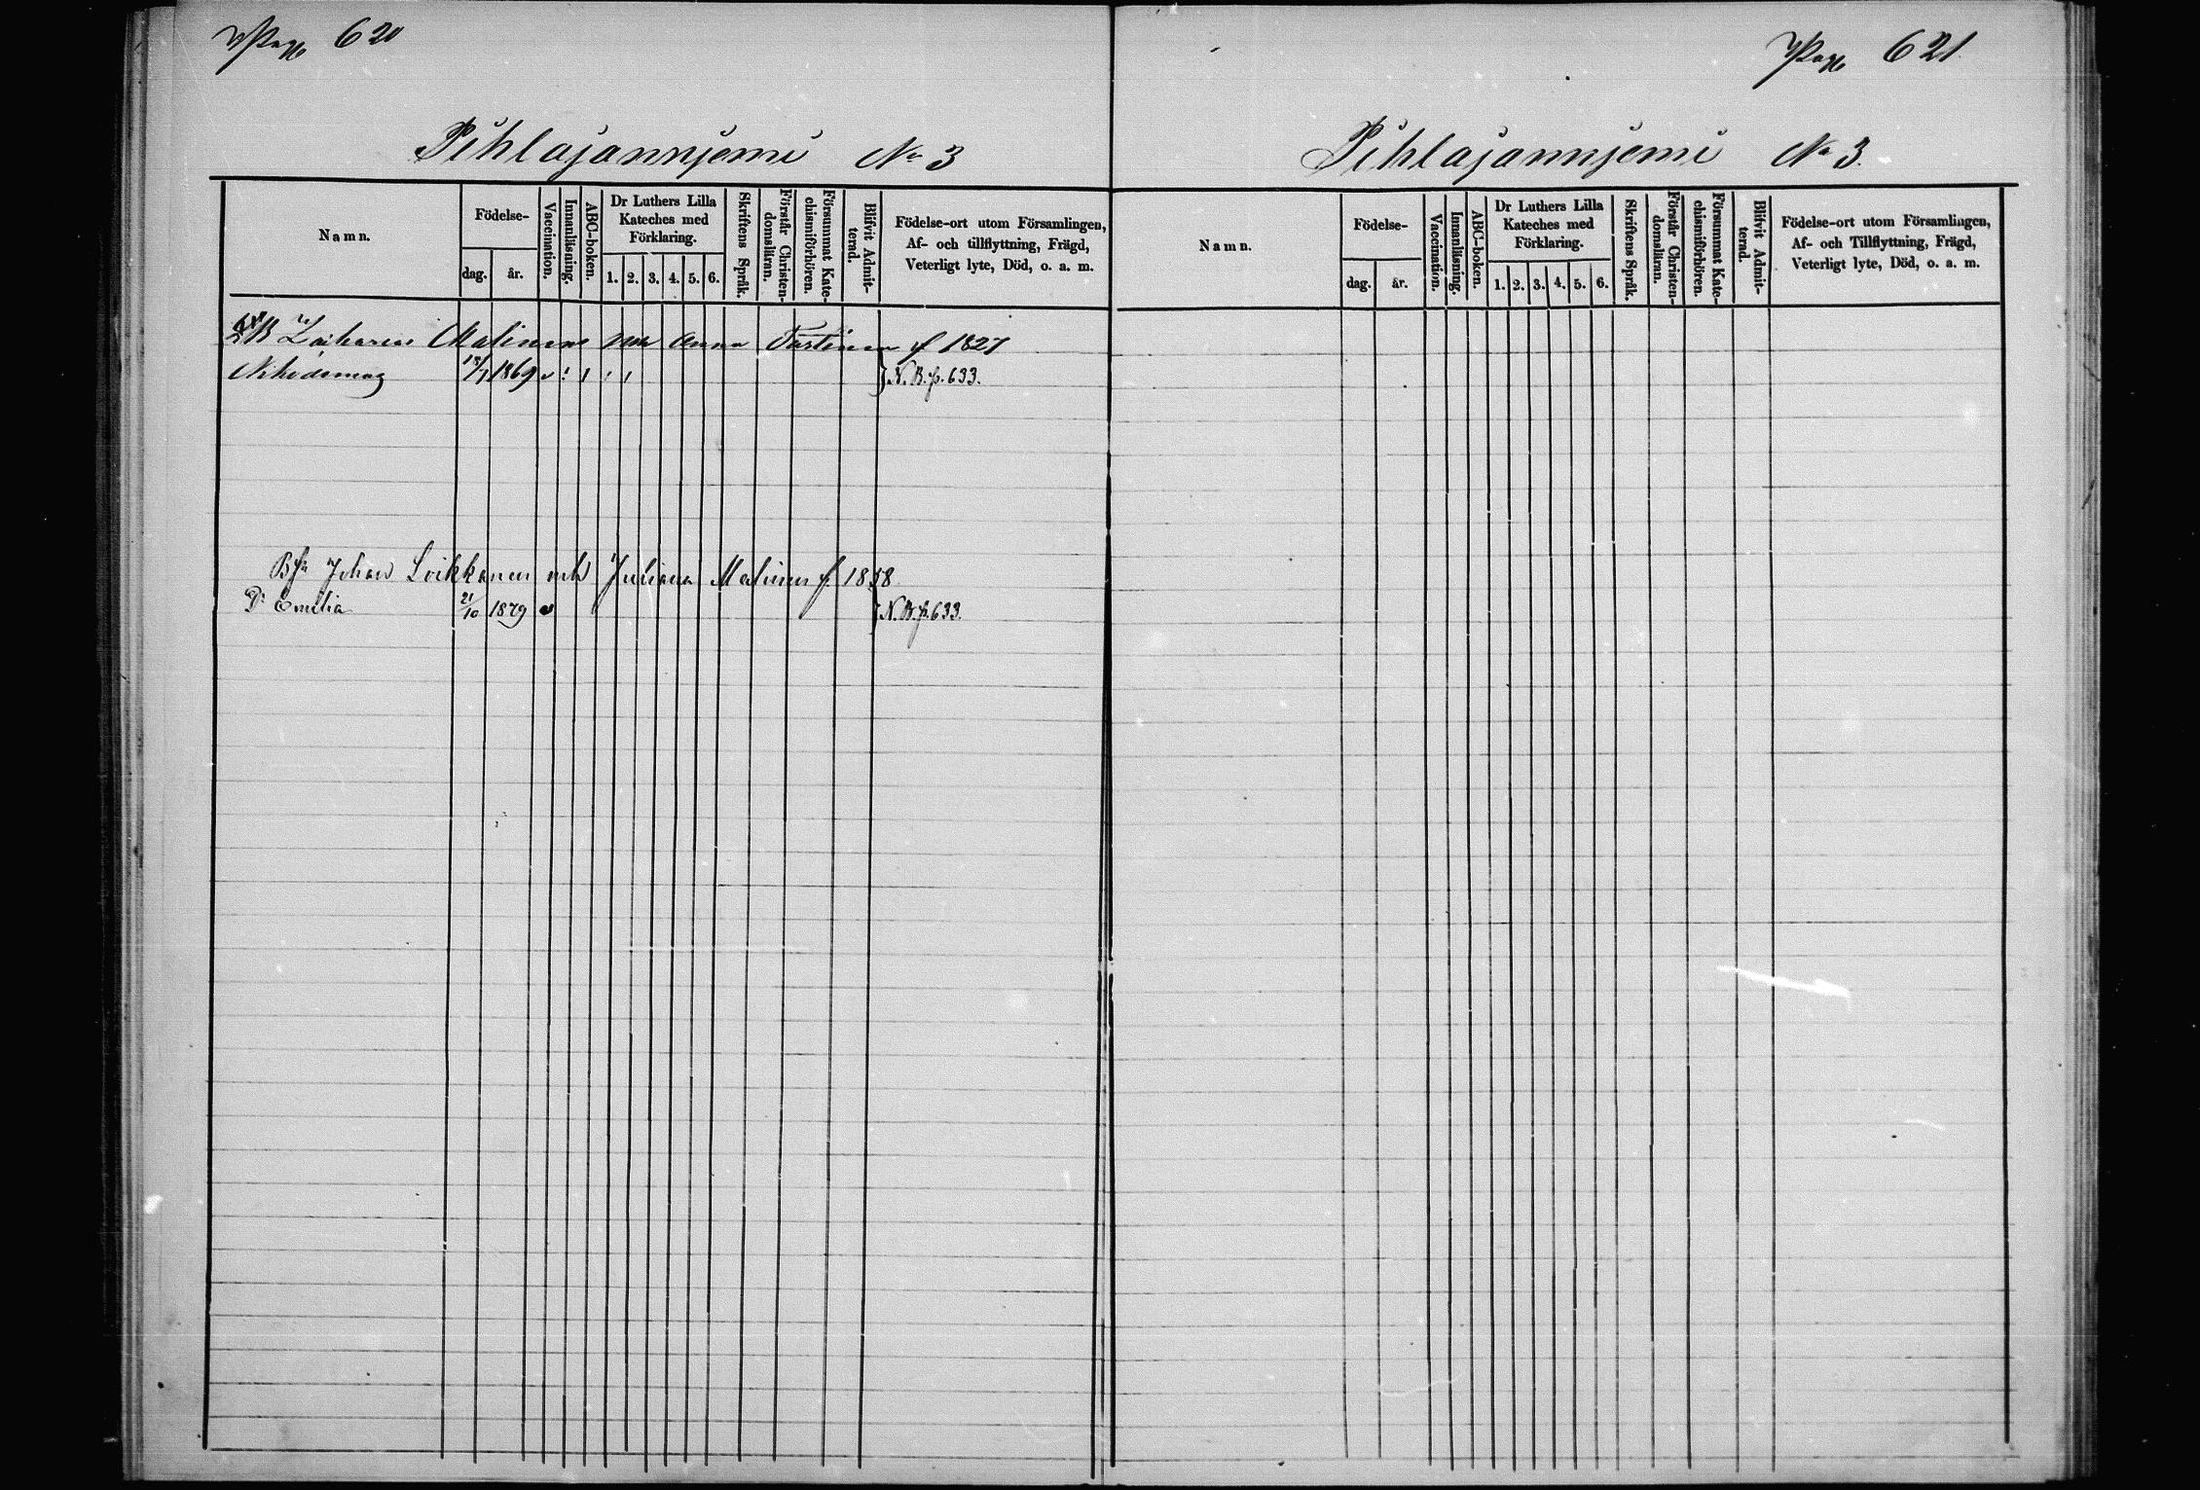 Pag. 620
Pihlajanniemi No 3
Namn.
Födelse-
dag.
år.
Vaccination.
Innanläsning.
ABC-boken.
Dr Luthers Lilla
Kateches med
Förklaring.
1. 2. 3. 4. 5. 6.
Skriftens Språk.
Förstår Christen-
domsläran.
Försummat Kate-
chismiförhören.
Blifvit Admit-
terad.
Födelse-ort utom Församlingen,
Af- och tillflyttning, Frägd,
Veterligt lyte, Död, o. a. m.
Zacharias Malinen Anna f 1827
Nikodemus 1869 N. B. p. 633.
Johan Loikkanen Juliana Malinen f. 1858
Dr Emilia 21/10 1879 N. B. p. 633.
Pag. 621
Pihlajanniemi No 3.
Namn.
Födelse-
dag.
år.
Vaccination.
Innanläsning.
ABC-boken.
Dr Luthers Lilla
Kateches med
Förklaring.
1. 2. 3. 4. 5. 6.
Skriftens Språk.
Förstår Christen-
domsläran.
Försummat Kate-
chismiförhören.
Blifvit Admit-
terad.
Födelse-ort utom Församlingen,
Af- och Tillflyttning, Frägd,
Veterligt lyte, Död, o. a. m.